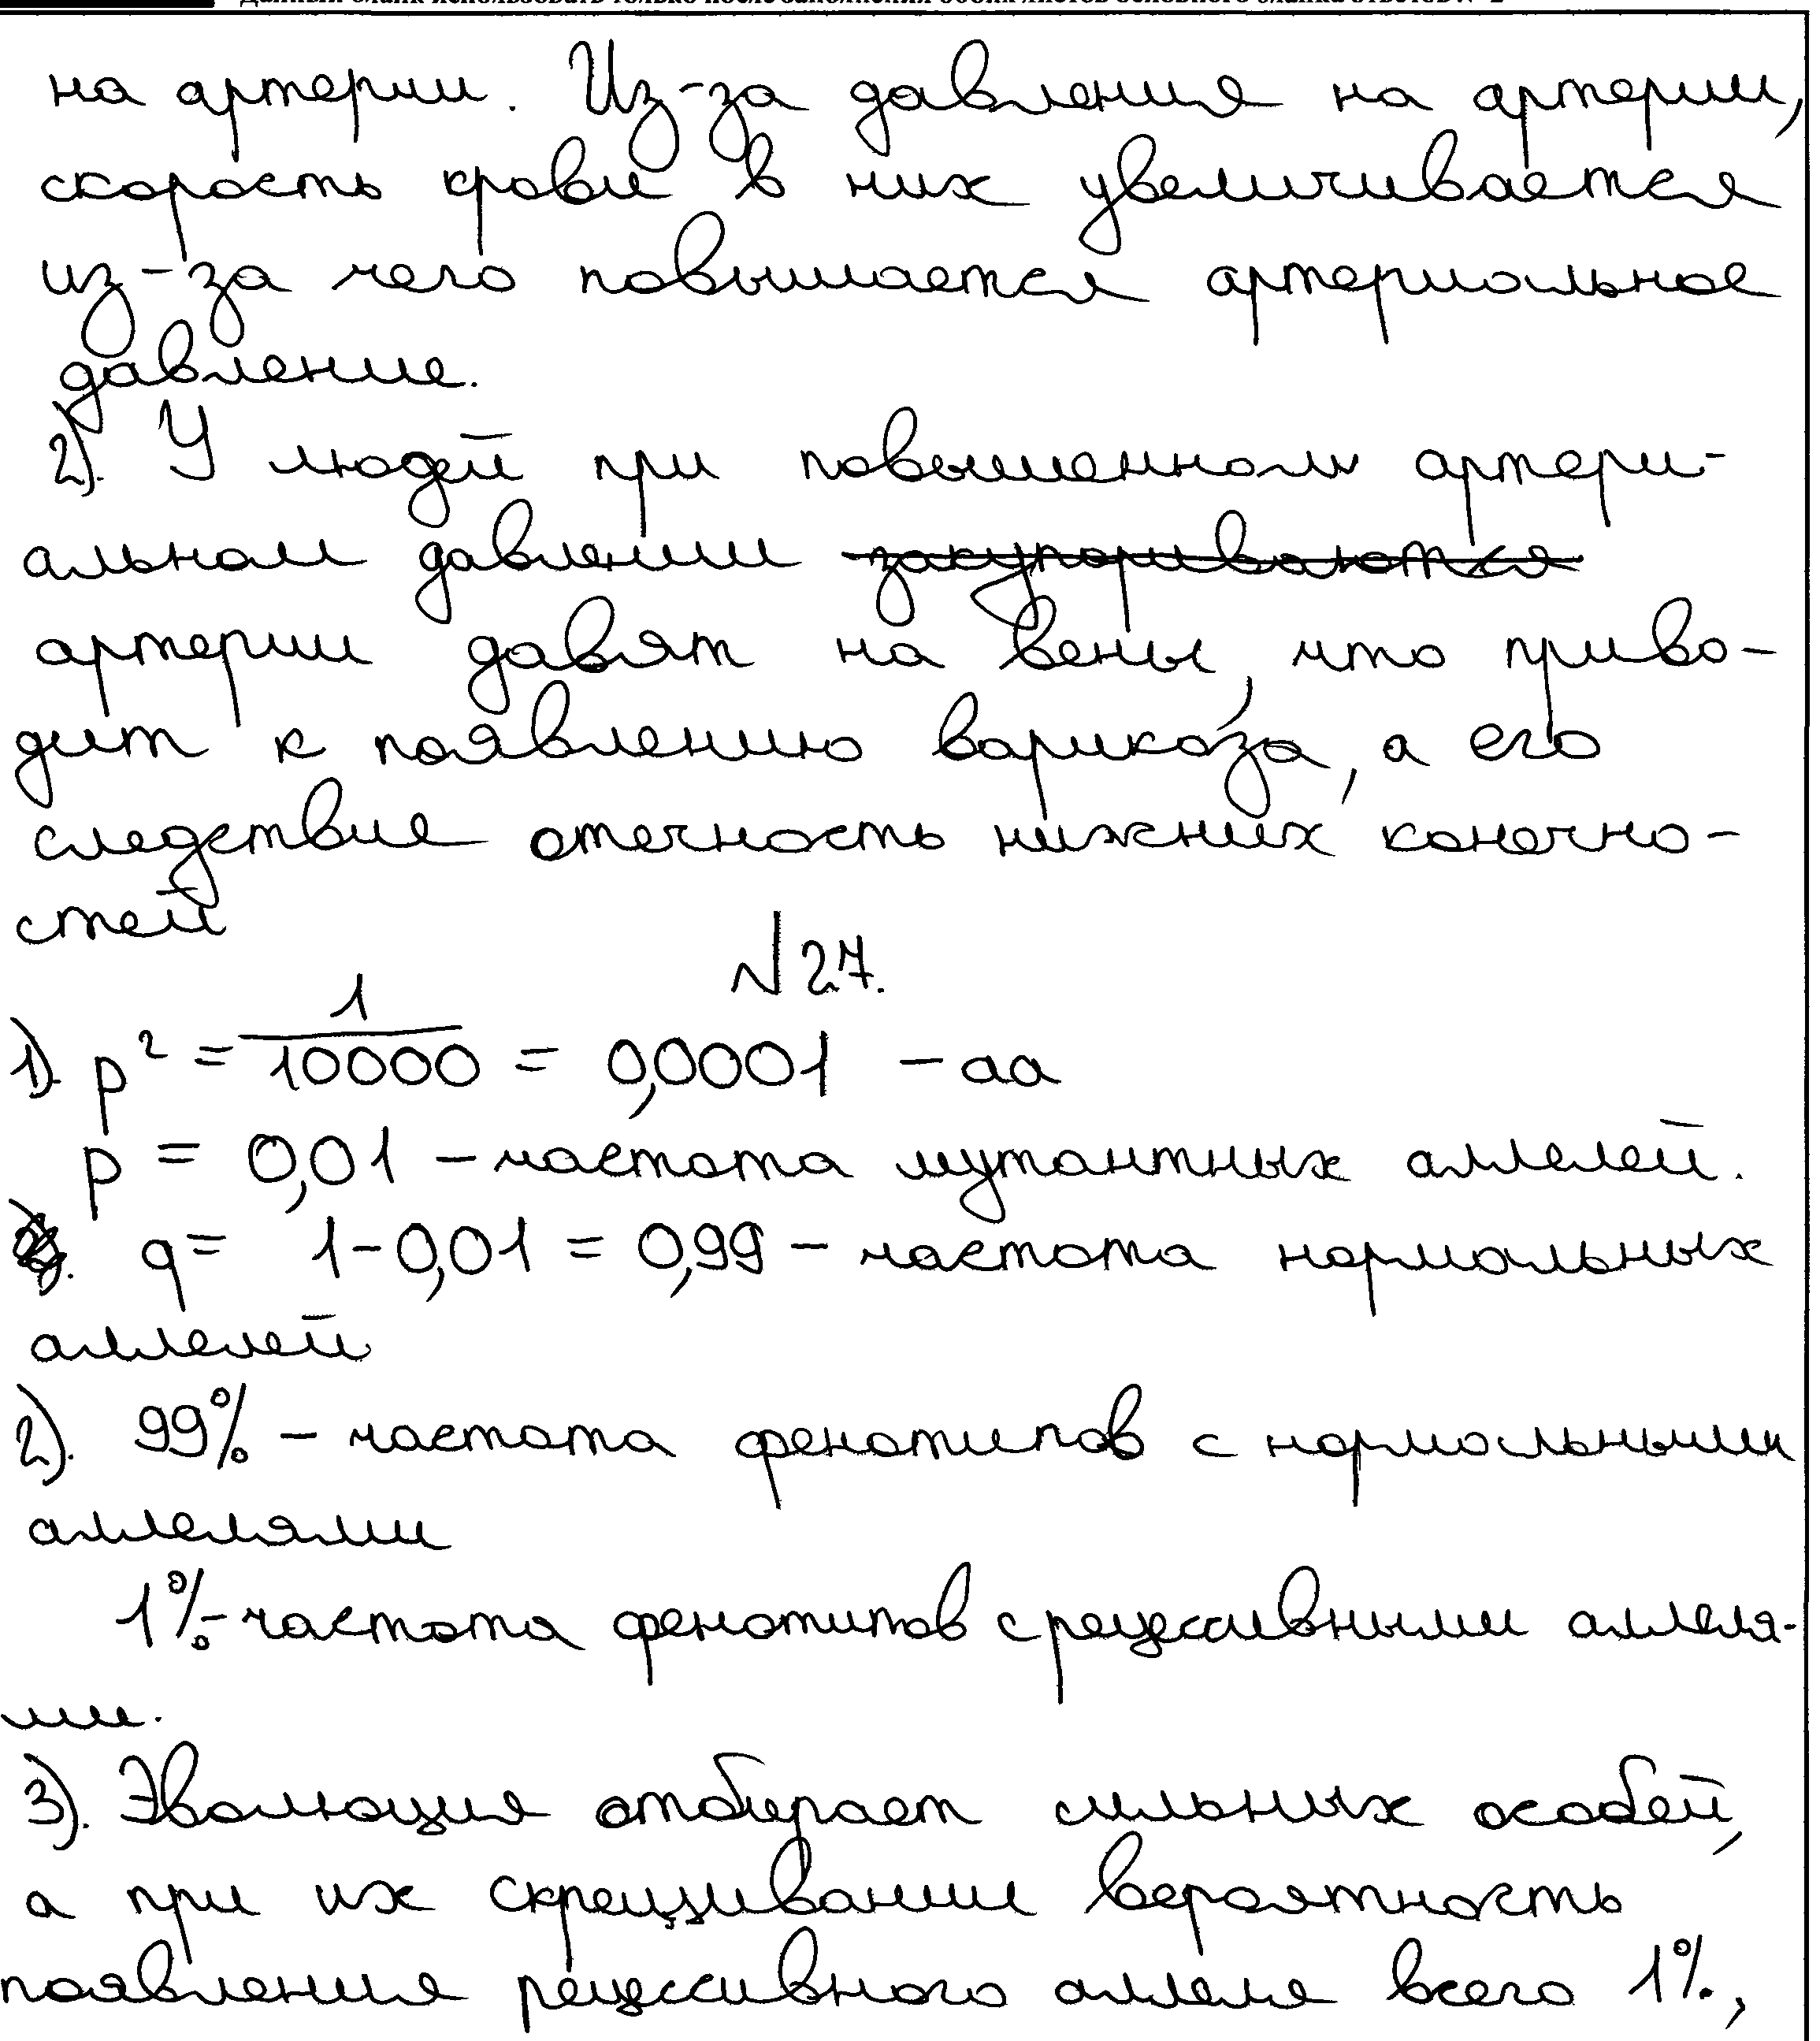 Данный бланк использовать только после заполнения обоих листов основного бланка ответов № 2
на артерии. Из-за давления на артерии,
скорость крови в них увеличивается
из-за чего повышается артериальное
давление.
2). У людей при повышенном артери-
альном давлении закупориваются
артерии давят на вены, что приво-
дит к появлению варикоза, а его
следствие отечность нижних конечно-
стей
№27.
1). p² = 1/10000 = 0,0001 – аа
p = 0,01 – частота мутантных аллелей.
q = 1-0,01 = 0,99 – частота нормальных
аллелей
2). 99% – частота фенотипов с нормальными
аллелями
1% – частота фенотипов с рецессивными аллеля-
ми.
3). Эволюция отбирает сильных особей,
а при их скрещивании вероятность
появления рецессивного аллеля всего 1%,